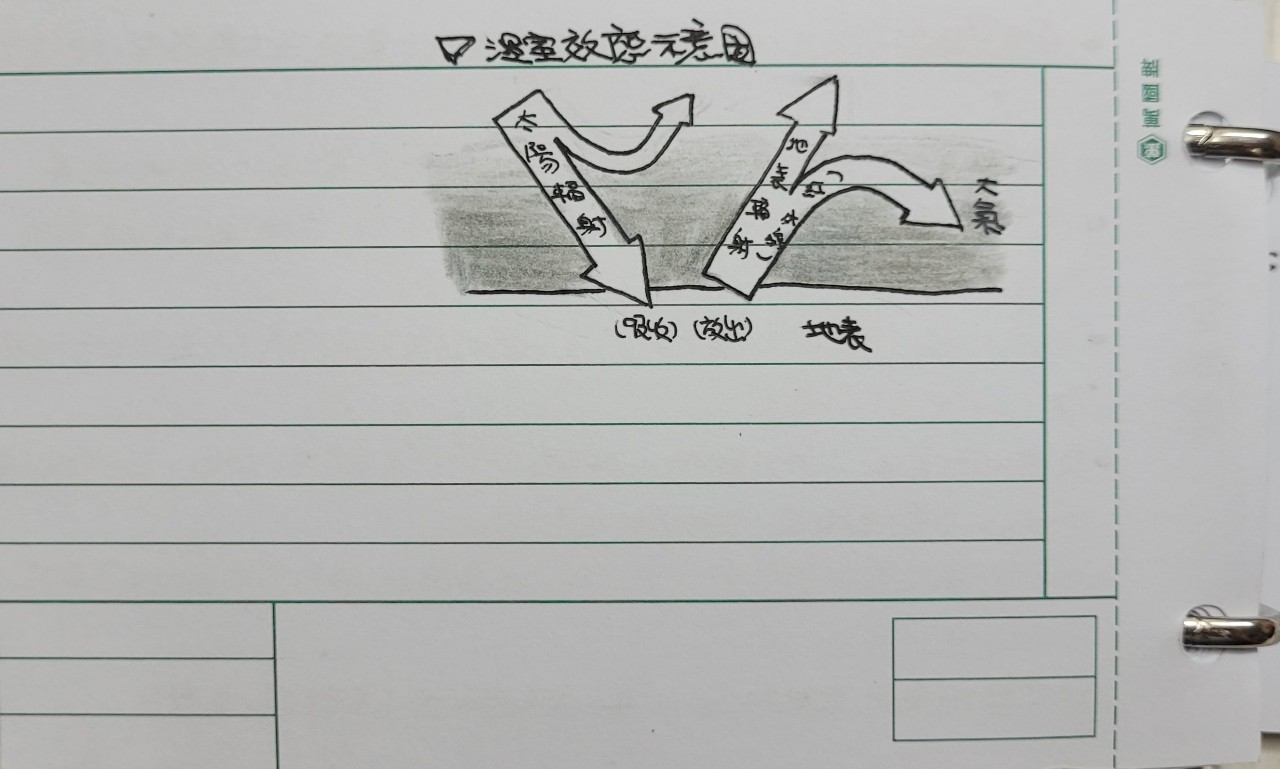 ▽ 溫室效應示意圖
太陽輻射
地表輻射
(紅外線)
大氣
(吸收) (放出) 地表
萬國牌